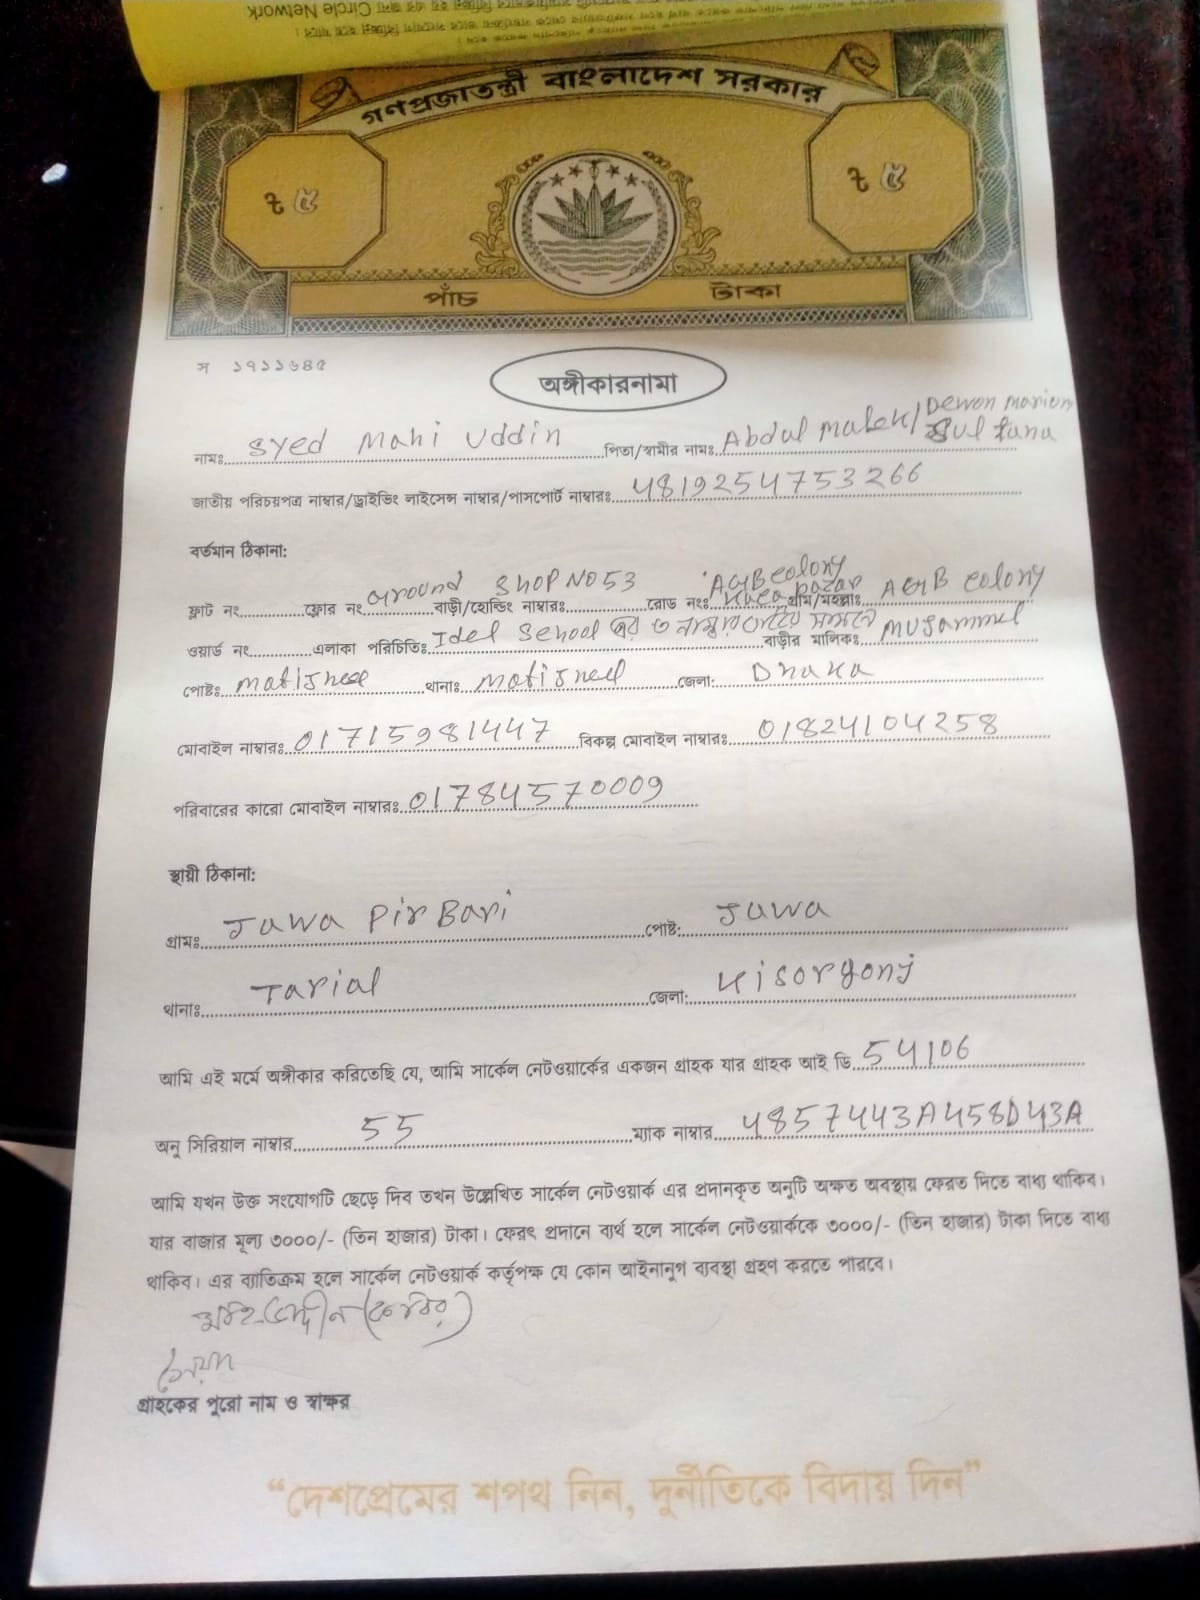 Circle Network
গণপ্রজাতন্ত্রী বাংলাদেশ সরকার
৳ ৫ ৳ ৫
পাঁচ টাকা
স ১৭১১৬৪৫
অঙ্গীকারনামা
নামঃ Syed Mahi Uddin পিতা/স্বামীর নামঃ Abdul Malek/Dewon Mariom Sultana
জাতীয় পরিচয়পত্র নাম্বার/ড্রাইভিং লাইসেন্স নাম্বার/পাসপোর্ট নাম্বারঃ 4819254753266
বর্তমান ঠিকানা:
ফ্লাট নং ফ্লোর নং Ground বাড়ী/হোল্ডিং নাম্বারঃ SHOP NO 53 রোড নংঃ AGB colony bazar গ্রাম/মহল্লাঃ AGB colony
ওয়ার্ড নং এলাকা পরিচিতিঃ Idel School এর ৩ নাম্বার গেটের সামনে বাড়ীর মালিকঃ Mujammel
পোষ্টঃ Motijheel থানাঃ Motijheel জেলা: Dhaka
মোবাইল নাম্বারঃ 01715981447 বিকল্প মোবাইল নাম্বারঃ 01824104258
পরিবারের কারো মোবাইল নাম্বারঃ 01784570009
স্থায়ী ঠিকানা:
গ্রামঃ Jawa Pir Bari পোষ্ট: Jawa
থানাঃ Tarial জেলা: Kisorgonj
আমি এই মর্মে অঙ্গীকার করিতেছি যে, আমি সার্কেল নেটওয়ার্কের একজন গ্রাহক যার গ্রাহক আই ডি 54106
অনু সিরিয়াল নাম্বার 55 ম্যাক নাম্বার 4857443A458D43A
আমি যখন উক্ত সংযোগটি ছেড়ে দিব তখন উল্লেখিত সার্কেল নেটওয়ার্ক এর প্রদানকৃত অনুটি অক্ষত অবস্থায় ফেরত দিতে বাধ্য থাকিব।
যার বাজার মূল্য ৩০০০/- (তিন হাজার) টাকা। ফেরৎ প্রদানে ব্যর্থ হলে সার্কেল নেটওয়ার্ককে ৩০০০/- (তিন হাজার) টাকা দিতে বাধ্য
থাকিব। এর ব্যাতিক্রম হলে সার্কেল নেটওয়ার্ক কর্তৃপক্ষ যে কোন আইনানুগ ব্যবস্থা গ্রহণ করতে পারবে।
গ্রাহকের পুরো নাম ও স্বাক্ষর
“দেশপ্রেমের শপথ নিন, দুর্নীতিকে বিদায় দিন”